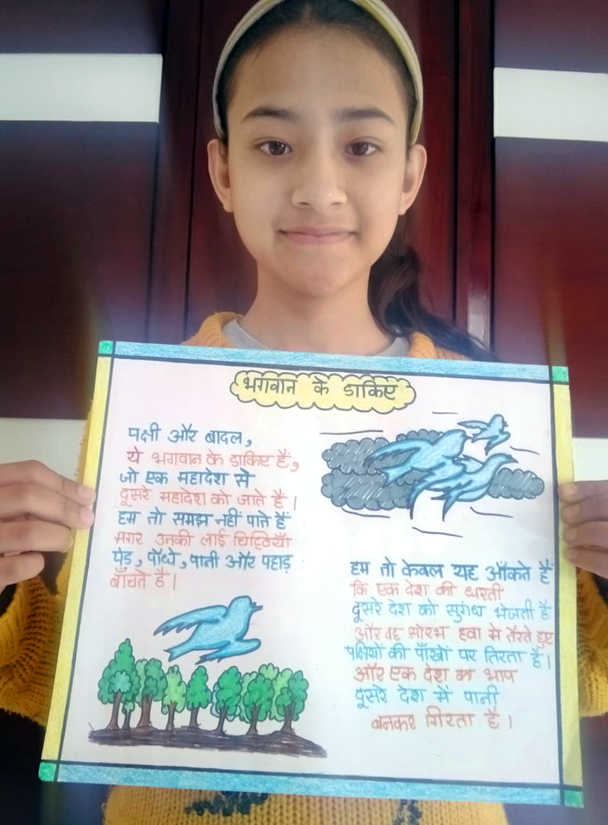 भगवान के डाकिए
पक्षी और बादल,
ये भगवान के डाकिए हैं,
जो एक महादेश से
दूसरे महादेश को जाते हैं।
हम तो समझ नहीं पाते हैं
मगर उनकी लाई चिट्ठियाँ
पेड़, पौधे, पानी और पहाड़
बाँचते हैं।
हम तो केवल यह आँकते हैं
कि एक देश की धरती
दूसरे देश को सुगंध भेजती है
और वह सौरभ हवा में तैरते हुए
पक्षियों की पाँखों पर तिरता है।
और एक देश का भाप
दूसरे देश में पानी
बनकर गिरता है।